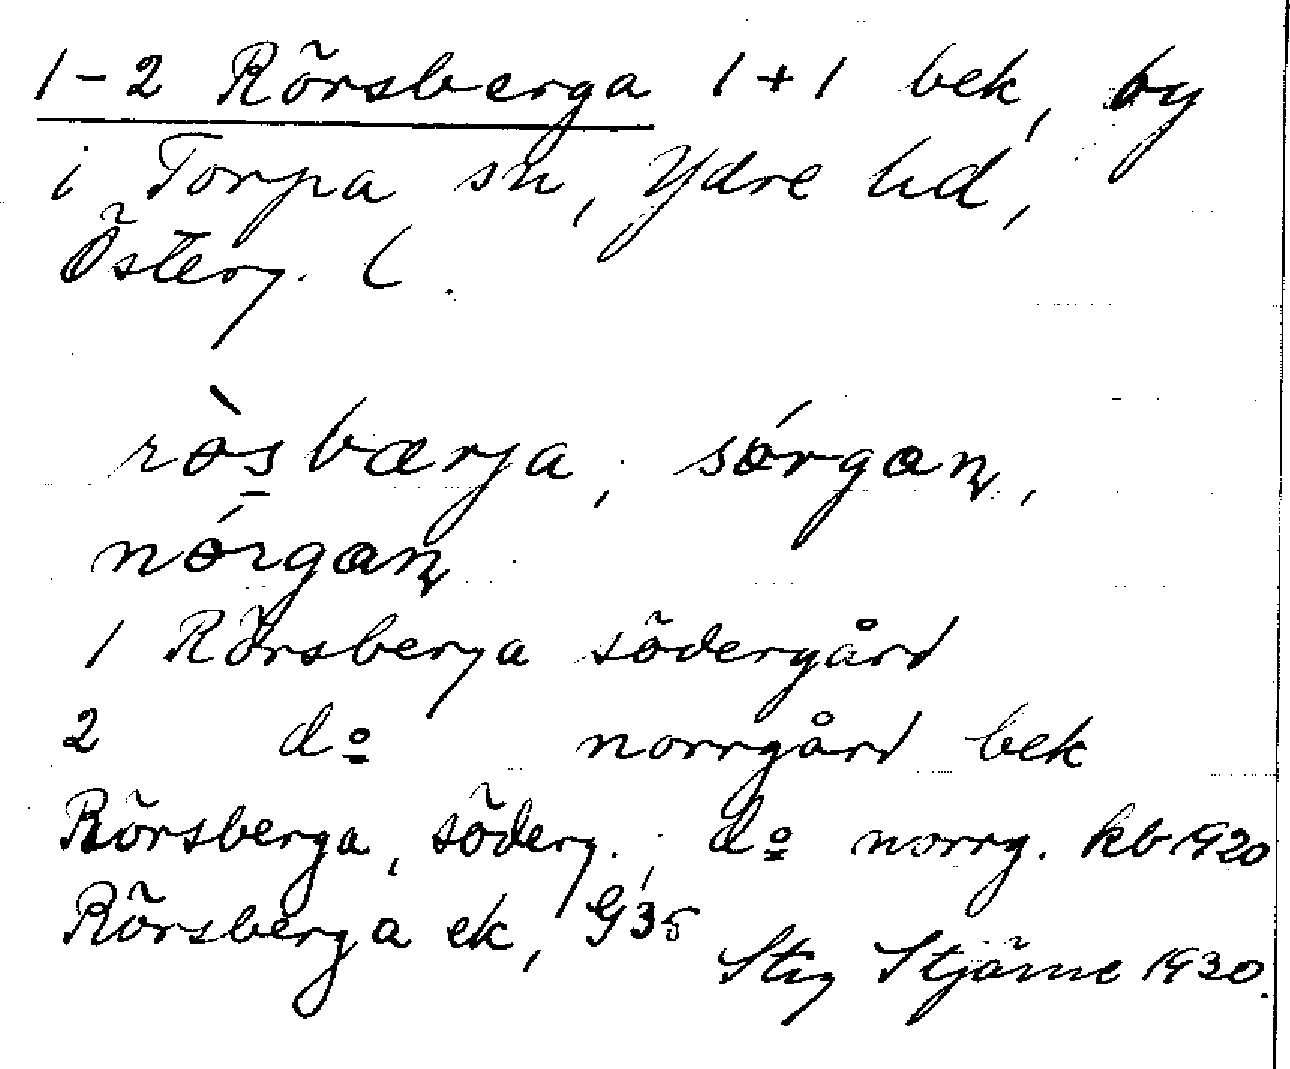 1-2 Rörsberga 1+1 bek, by
i Torpa sn, Ydre hd,
Österg. l.
rə̀s̱bærja, sǿrgan,
nǿrgan
1 Rörsberga södergård
2 dº norrgård bek
Rörsberga, söderg.; dº norrg. kb 1920
Rörsberga ek, G35
Stig Stjärne 1930.